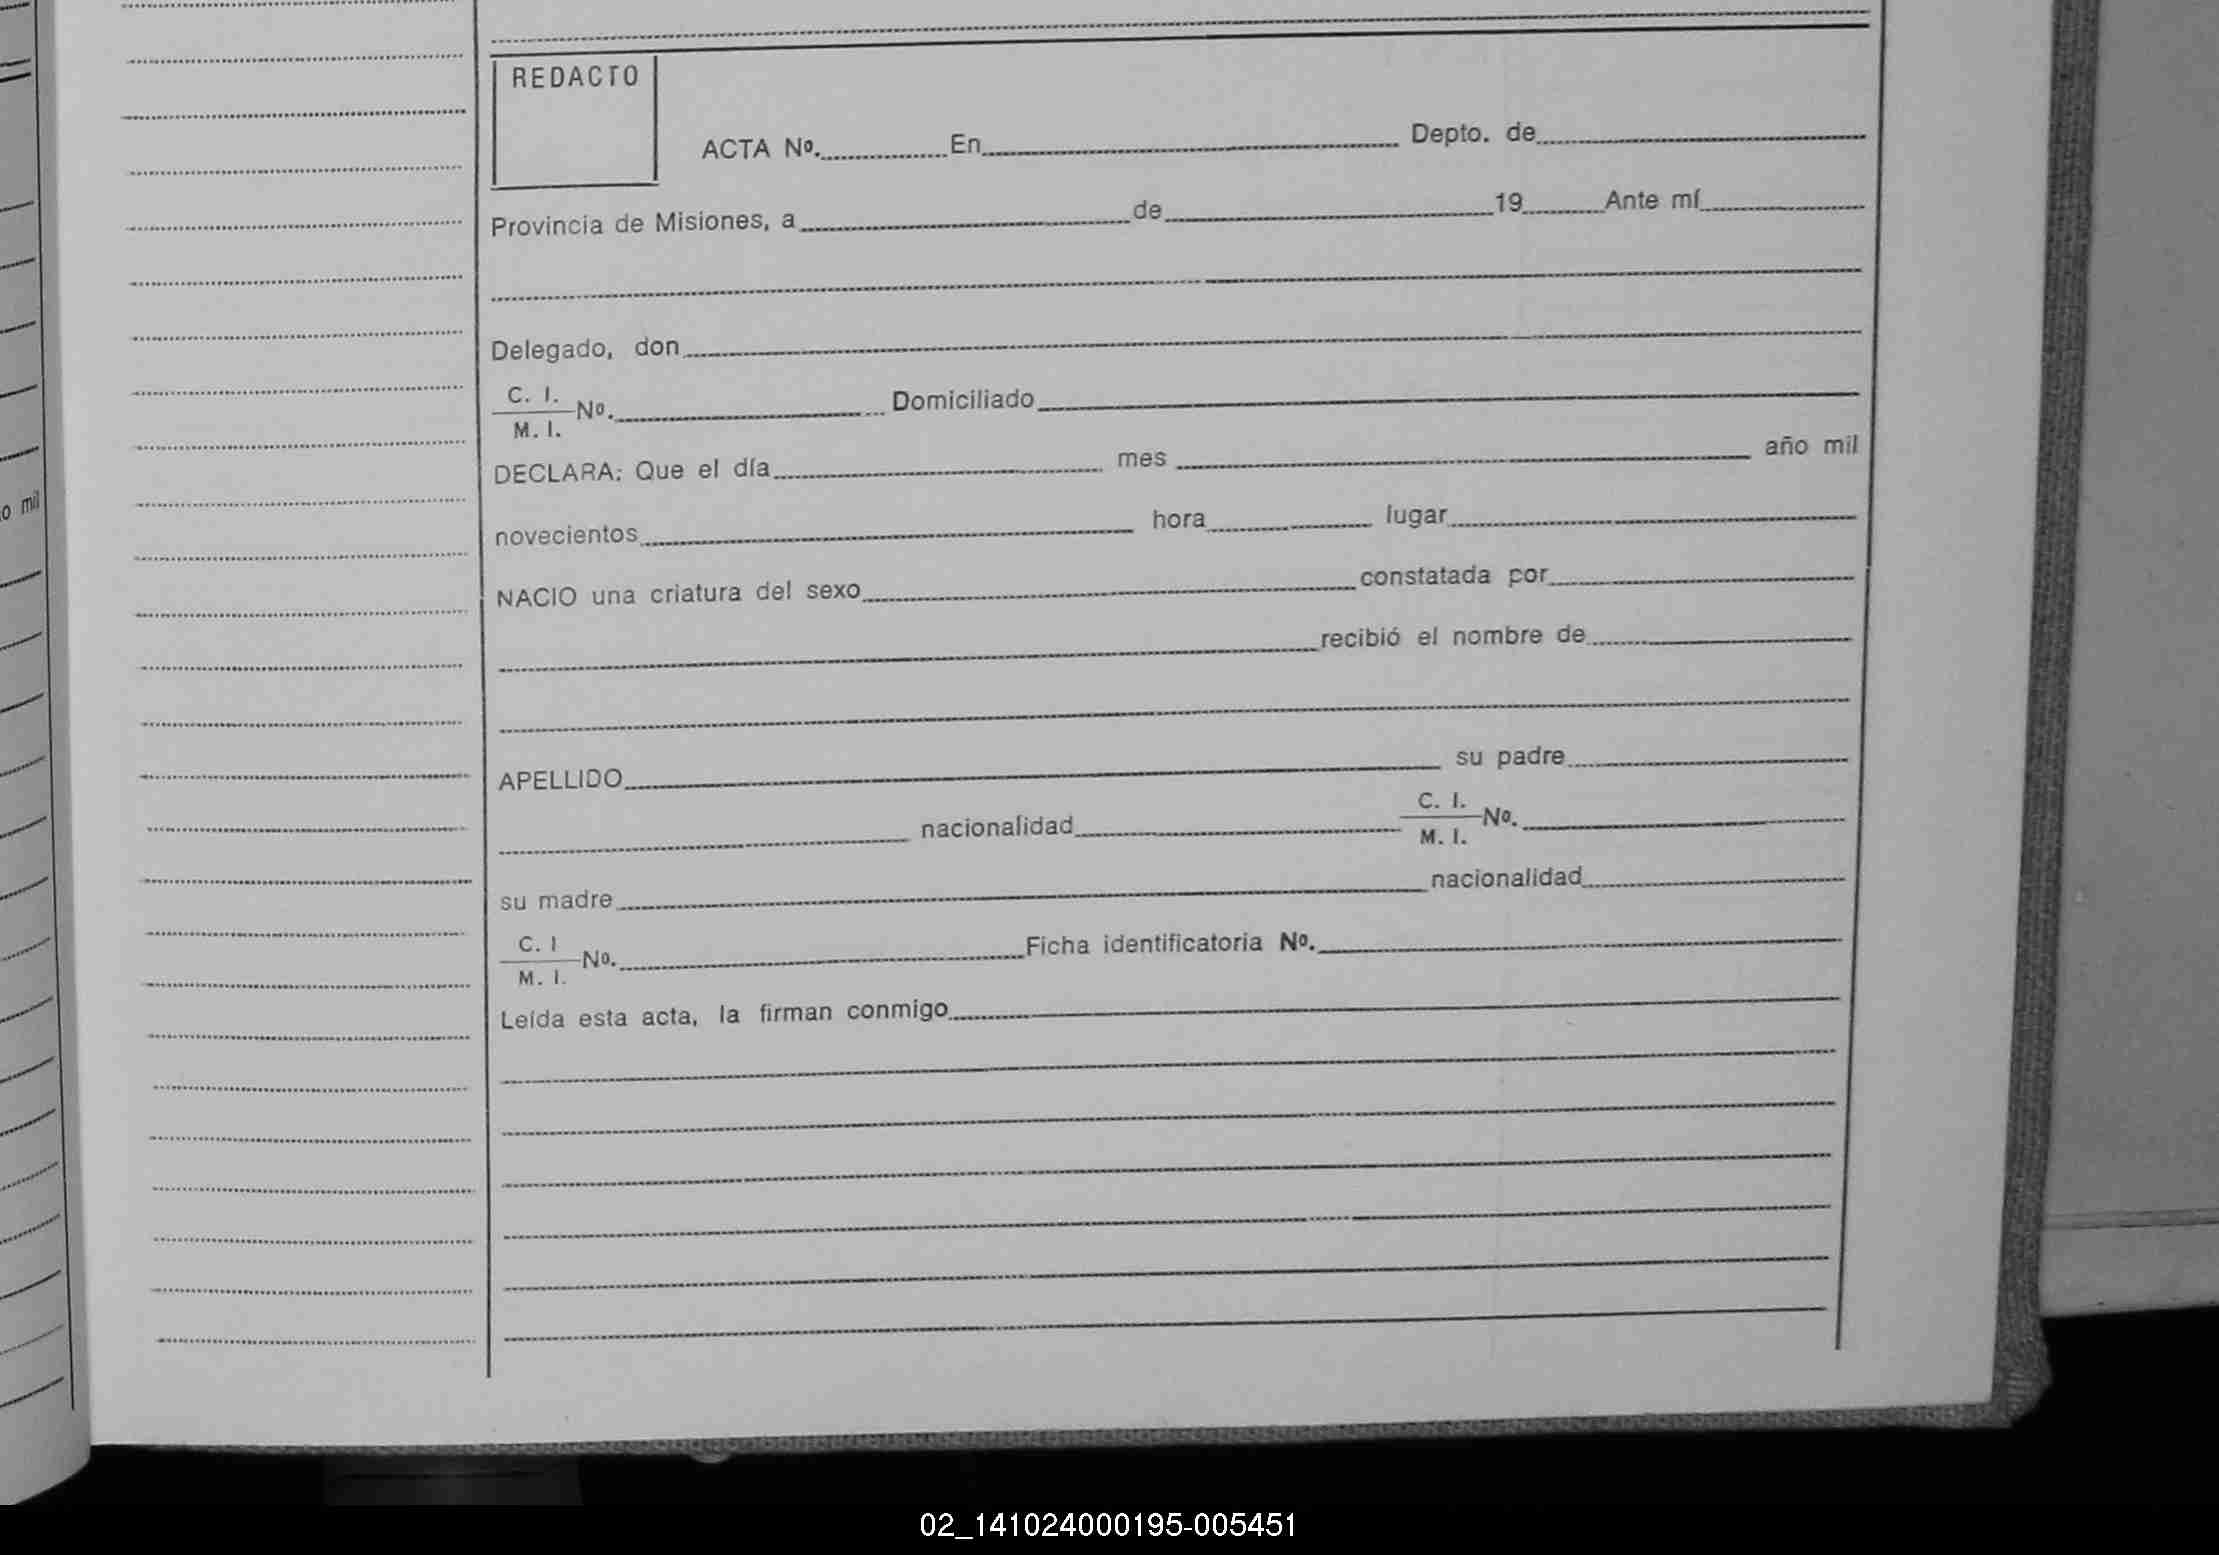 REDACTO
ACTA Nº. En Depto. de
Provincia de Misiones, a de 19 Ante mí
Delegado, don
C. I.
M. I. Nº. Domiciliado
DECLARA: Que el día mes año mil
novecientos hora lugar
NACIO una criatura del sexo constatada por
recibió el nombre de
APELLIDO su padre
nacionalidad C. I.
M. I. Nº.
su madre nacionalidad
C. I
M. I. Nº. Ficha identificatoria Nº.
Leída esta acta, la firman conmigo
o mil
02_141024000195-005451